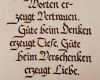 Worten er=
zeugt Vertrauen.
Güte beim Denken
erzeugt Tiefe. Güte
beim Verschenken
erzeugt Liebe.